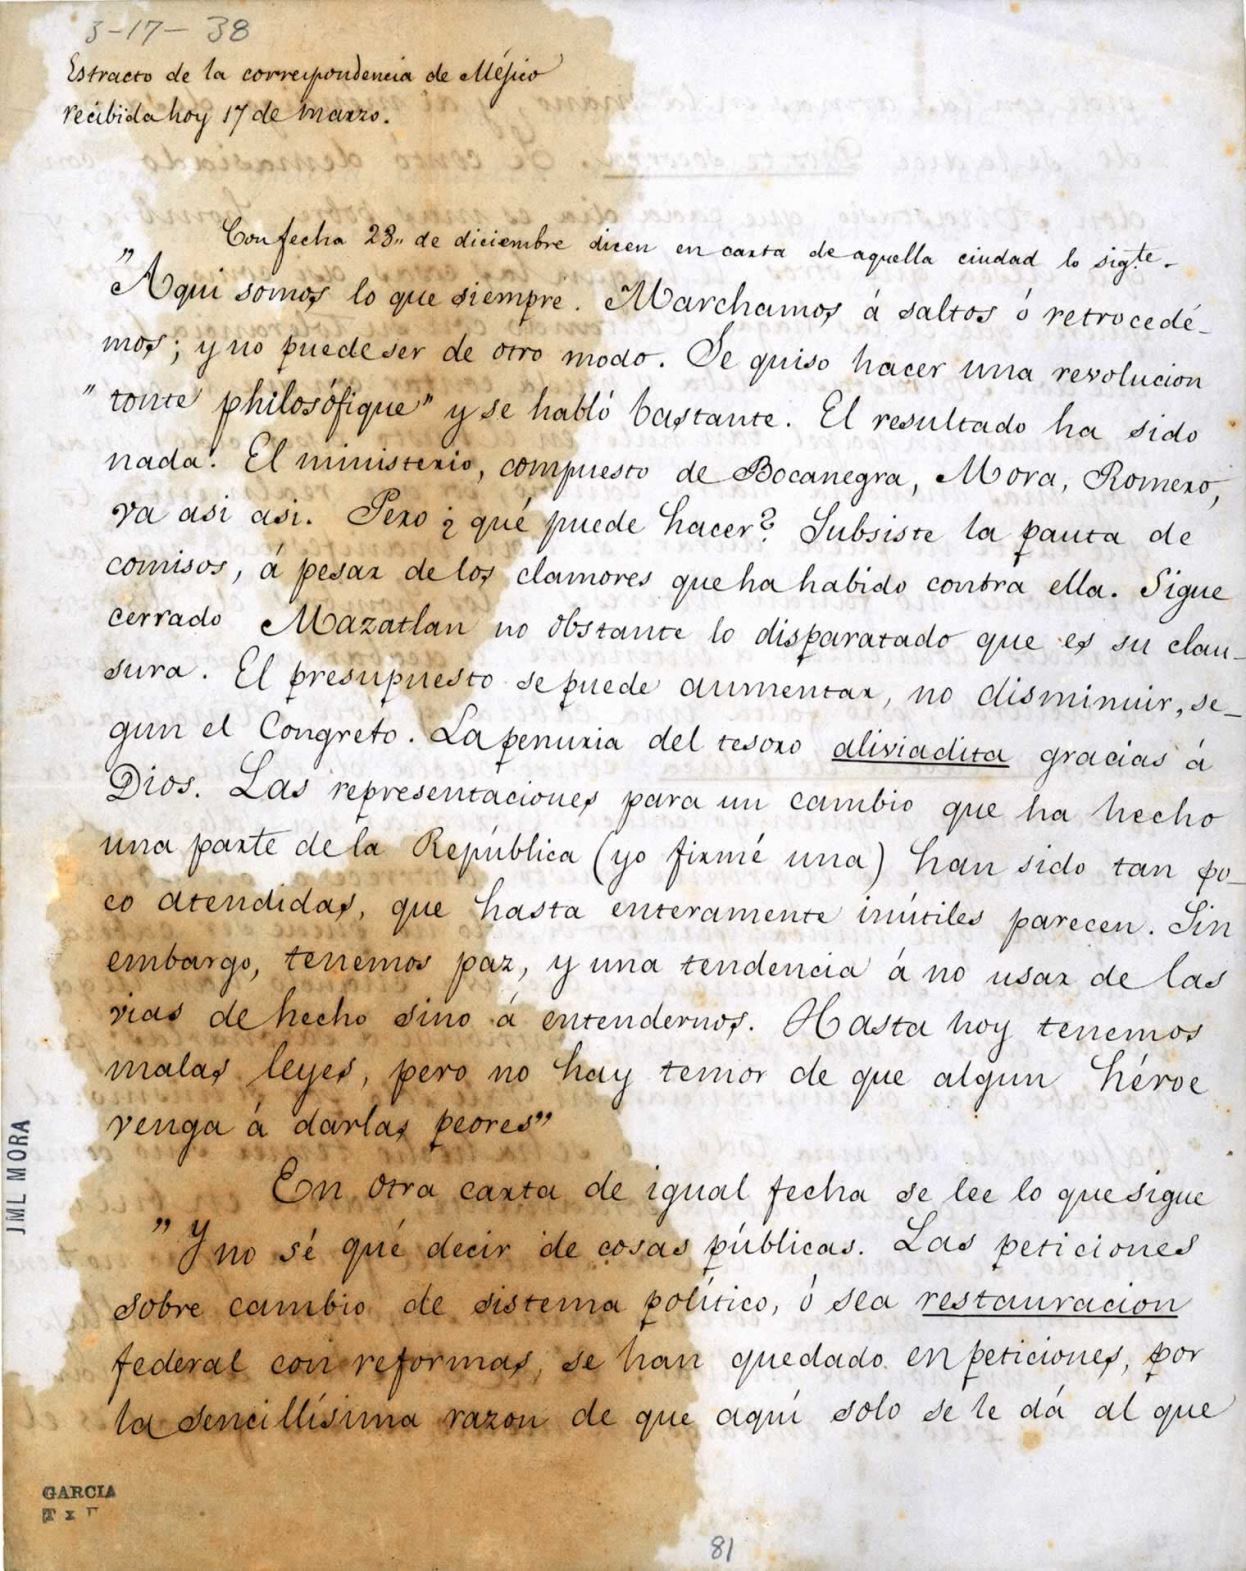 3-17-38
Estracto de la correspondencia de Méjico
recibida hoy 17 de marzo.
Con fecha 28,, de diciembre dicen en carta de aquella ciudad lo sigte.
"Aqui somos lo que siempre. Marchamos á saltos ó retrocedé-
mos; y no puede ser de otro modo. Se quiso hacer una revolucion
"toute philosófique" y se habló bastante. El resultado ha sido
nada. El ministerio, compuesto de Bocanegra, Mora, Romero,
va asi asi. Pero ¿qué puede hacer? Subsiste la pauta de
comisos, á pesar de los clamores que ha habido contra ella. Sigue
cerrado Mazatlan no obstante lo disparatado que es su clau-
sura. El presupuesto se puede aumentar, no disminuir, se-
gun el Congreto. La penuria del tesoro aliviadita gracias á
Dios. Las representaciones para un cambio que ha hecho
una parte de la República (yo firmé una) han sido tan po-
co atendidas, que hasta enteramente inútiles parecen. Sin
embargo, tenemos paz, y una tendencia á no usar de las
vias de hecho sino á entendernos. Hasta hoy tenemos
malas leyes, pero no hay temor de que algun héroe
venga á darlas peores"
En otra carta de igual fecha se lee lo que sigue
"Y no sé qué decir de cosas públicas. Las peticiones
sobre cambio de sistema político, ó sea restauracion
federal con reformas, se han quedado en peticiones, por
la sencillísima razon de que aquí solo se le dá al que
JML MORA
GARCIA
81